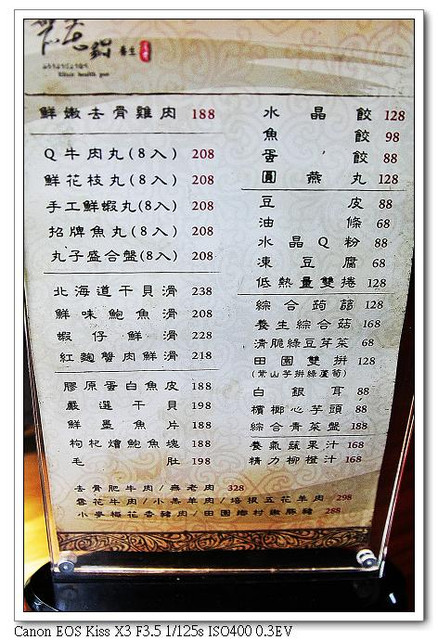 養生
Elixir health pot
鮮嫩去骨雞肉 188
Q牛肉丸(8入) 208
鮮花枝丸(8入) 208
手工鮮蝦丸(8入) 208
招牌魚丸(8入) 208
丸子盛合盤(8入) 208
北海道干貝滑 238
鮮味鮑魚滑 208
蝦仔鮮滑 228
紅麴蟹肉鮮滑 218
膠原蛋白魚皮 188
嚴選干貝 198
鮮墨魚片 188
枸杞燴鮑魚塊 188
毛肚 198
水晶餃 128
魚餃 98
蛋餃 88
圓燕丸 128
豆皮 88
油條 68
水晶Q粉 88
凍豆腐 68
低熱量雙捲 128
綜合蒟蒻 128
養生綜合菇 168
清脆綠豆芽菜 68
田園雙拼 128
(紫山芋拼綠蘆筍)
白銀耳 88
檳榔心芋頭 88
綜合青菜盤 188
養氣蔬果汁 168
精力柳橙汁 168
去骨肥牛肉/無老肉 328
霜花牛肉/小羔羊肉/培根五花羊肉 298
小麥梅花香豬肉/田園鄉村嫩豚豬 288
Canon EOS Kiss X3 F3.5 1/125s ISO400 0.3EV